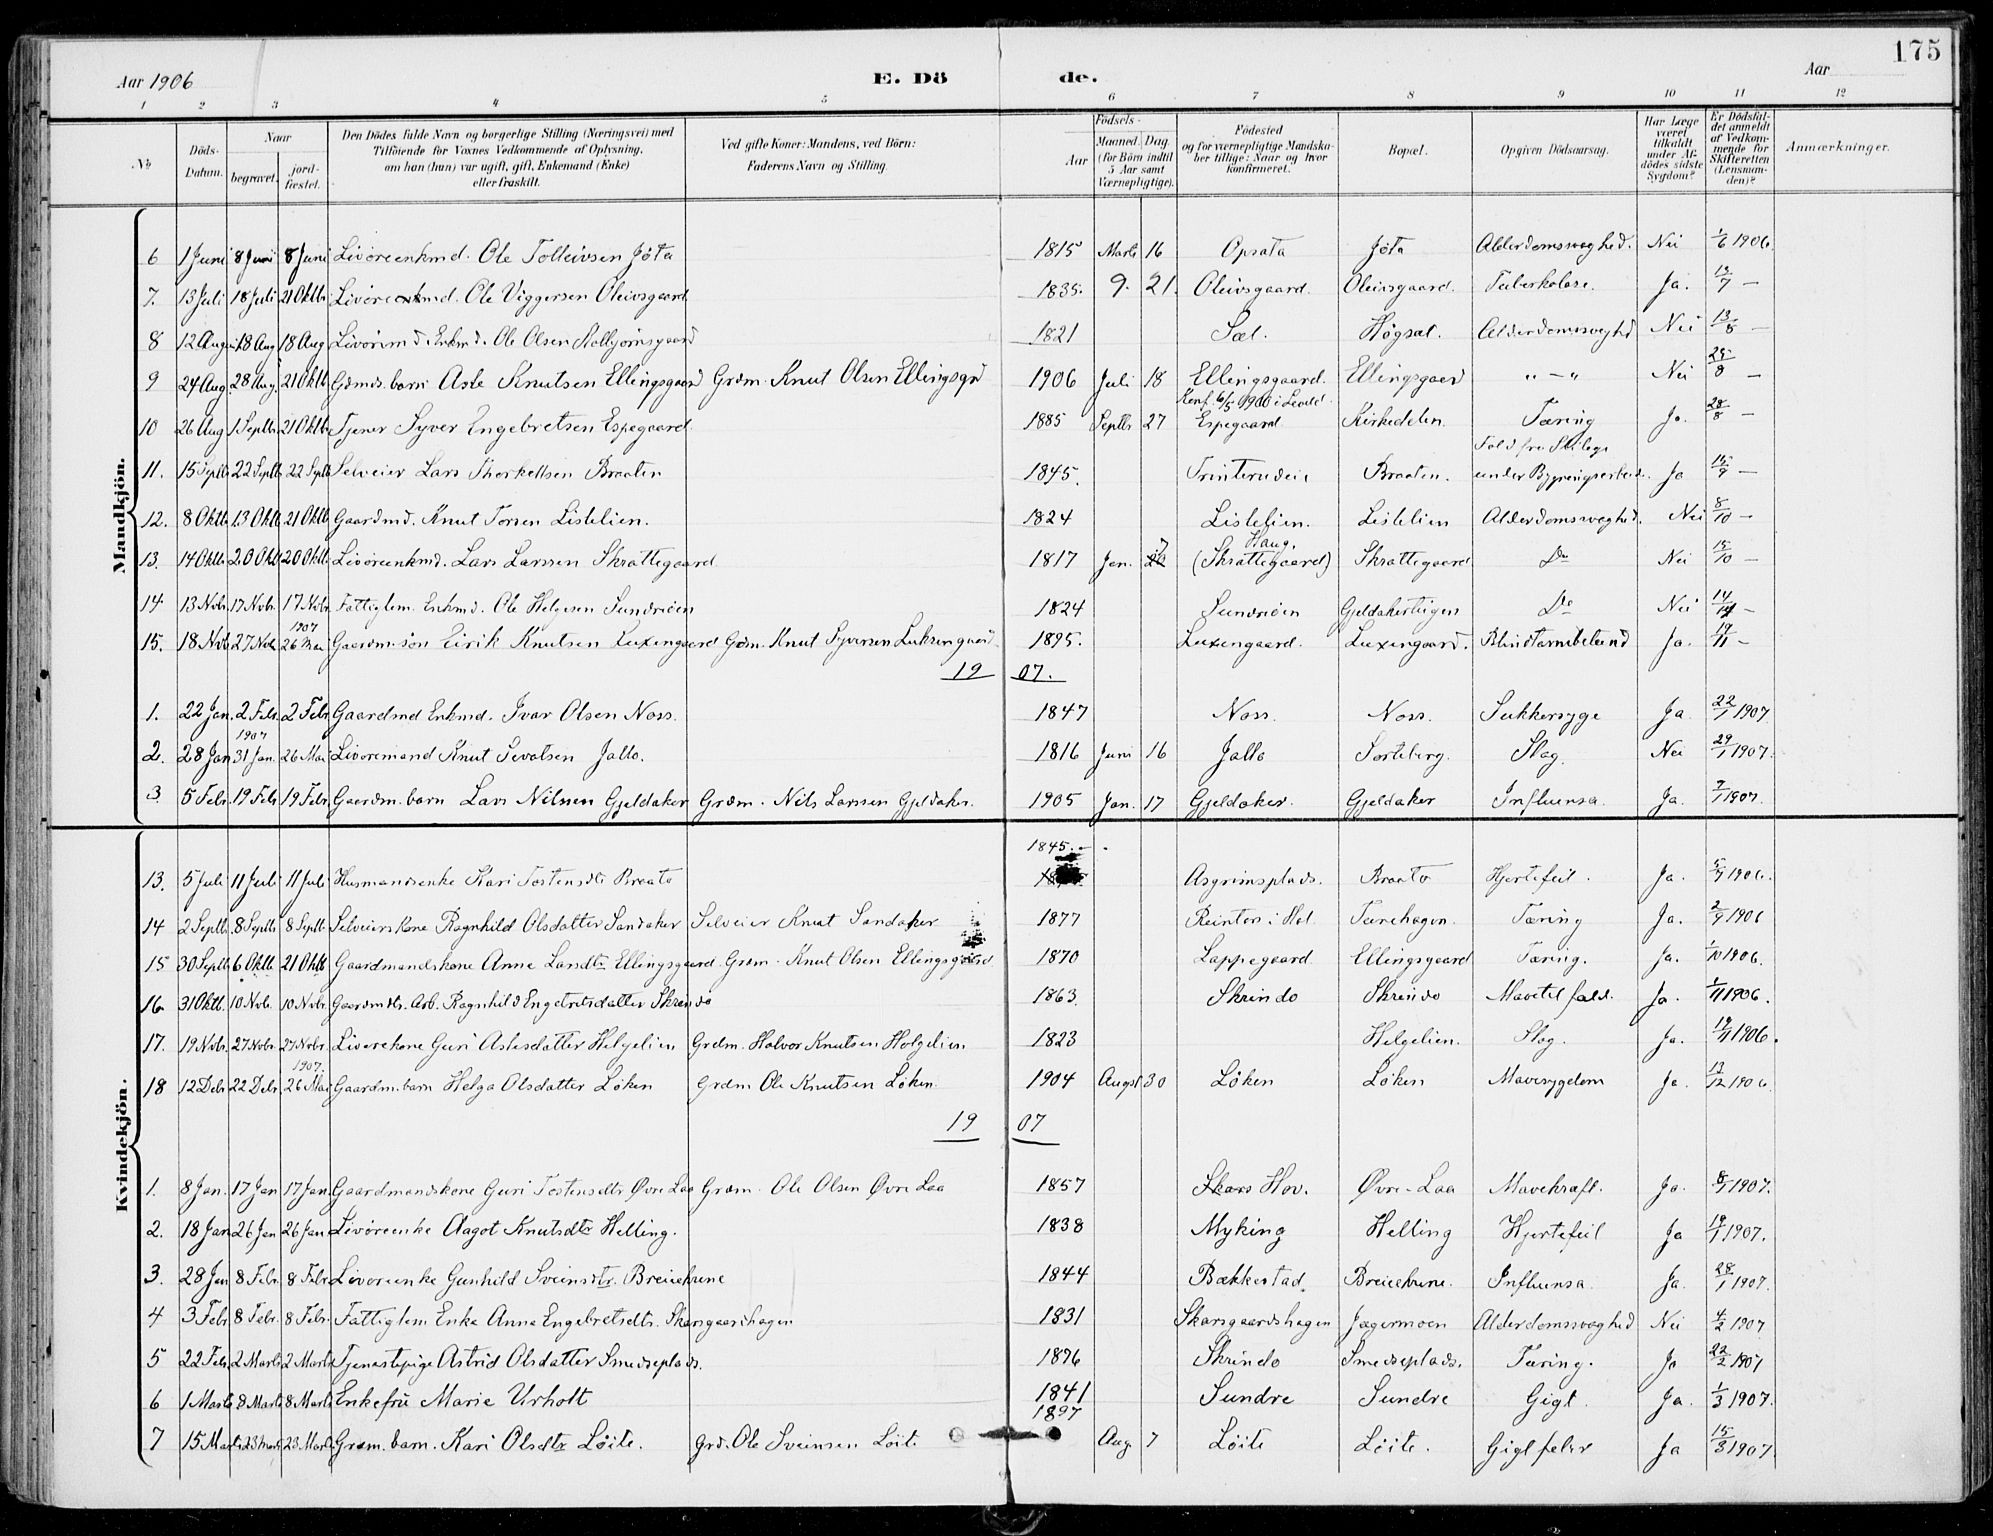 175
Aar 1906 E. Dö de. Aar
1 2 3 4 5 6 7 8 9 10 11 12
No
Döds-Datum.
Naar
begravet.
jordfæstet.
Den Dödes fulde Navn og borgerlige Stilling (Næringsvei) med Tilföiende for Voxnes Vedkommende af Oplysning, om han (hun) var ugift, gift, Enkemand (Enke) eller fraskilt.
Ved gifte Koner: Mandens, ved Börn: Faderens Navn og Stilling.
Födsels-
Aar
Maaned. Dag.
(for Börn indtil 5 Aar samt Værnepligtige).
Födested og for værnepligtige Mandskaber tillige: Naar og hvor konfirmeret.
Bopæl.
Opgiven Dödsaarsag.
Har Læge været tilkaldt under Afdödes sidste Sygdom?
Er Dödsfaldet anmeldt af Vedkommende for Skifteretten (Lensmanden)?
Anmærkninger.
Mandkjön.
6 1 Juni 8 Juni 8 Juni Livöreenkmd. Ole Tolleivsen Jöta 1815 Marts 16 Opsata Jöta Alderdomssvaghed. Nei 1/6 1906
7. 13 Juli 18 Juli 21 Oktbr. Livöreenkmd. Ole Viggersen Oleivsgaard 1835. 9. 21. Oleivsgaard. Oleivsgaard. Tuberkolose. Ja. 13/7 —
8 12 Aug. 18 Aug 18 Aug Livörimd. Enkmd. Ole Olsen 1821 Sæl. Högsæt. Alderdomssvaghd Nei 13/8 —
9 24 Aug. 28 Aug. 21 Oktb. Gdmds. barn Asle Knutsen Ellingsgaard Grdm. Knut Olsen Ellingsgrd 1906 Juli 18 Ellingsgaard. Ellingsgaard " — " Nei 25/8 —
10 26 Aug 1 Septb. 21 Oktb. Tjener Syver Engebretsen Espegaard. 1885 Septb 27 Konf. 6/5 1900 i Espegaard Kirkedelen. Tæring Ja. 28/8 —
11. 15 Septb 22 Septb 22 Septb Selveier Lars Thorkelsen Braaten 1845. Braaten. Fald fra Stilege under Ja 15/9 —
12. 8 Oktb. 13 Oktb 21 Oktb Gaardmd. Knut Torsen Lislelien. 1824 Lislelien. Lislelien Alderdomssvaghed. Nei 8/10 —
13. 14 Oktb. 20 Oktb 20 Oktb. Livöreenkmd. Lars Larssen Skrattegaard 1817 Jan. 7 Haug. (Skrattegaard) Skrattegaard Do Nei 15/10 —
14 13 Nvbr. 17 Nvbr. 17 Nvbr. Fattiglem. Enkmd. Ole Helgesen Sundreöen 1824 Sundreöen Do Nei 14/11 —
15. 18 Nvb. 27 Nvb. 1907 26 Mai Gaardm. sön Eirik Knutsen Luxengaard Grdm. Knut Syversen Luksengaard 1895. Luxengaard. Luxengaard. Blindtarmbetænd Ja. 19/11 —
1907.
1. 22 Jan. 2 Febr. 2 Febr Gaardmd Enkmd. Ivar Olsen Noss. 1847 Noss. Noss. Sukkersyge Ja. 22/1 1907.
2. 28 Jan 1907 31 Jan. 26 Mai Livöremand Knut Sevatsen Jallo. 1816 Juni 16 Jallo Sorteberg. Slag. Nei 29/1 1907.
3. 5 Febr. 19 Febr 19 Febr. Gaardm. barn Lars Nilssen Gjeldaker Grdm. Nils Larssen Gjeldaker. 1905 Jan. 17 Gjeldaker. Gjeldaker Influensa. Ja. 1907.
Kvindekjön.
13. 5 Juli 11 Juli 11 Juli Husmandsenke Kari Tostensdtr Braato 1845. Asgrimsplads. Braato Hjertefeil. Ja. 5/7 1906.
14 2 Septb 8 Septb 8 Septb. Selveierskone Ragnhild Olsdatter Sandaker Selveier Knut Sandaker 1877 Reinton i Hol Turehagen. Tæring Ja. 2/9 1906
15 30 Septb 6 Oktb. 21 Oktb Gaardmandskone Anne Larsdtr Ellingsgaard. Grdm. Knut Olsen Ellingsgaard 1870 Lappegaard Ellingsgaard Tæring. Ja. 1/10 1906.
16 31 Oktb. 10 Nvb. 10 Nvbr. Gaardmdtr. Arb. Ragnhild Engebretsdatter Skrindo 1863. Skrindo Skrindo Mavetilfald. Ja. 1/11 1906.
17. 19 Nvbr. 27 Nvbr. 27 Nvbr. Livörekone Guri Aslesdatter Helgelien Grdm. Halvor Knutsen Helgelien 1823 Helgelien. Slag. Ja. 19/11 1906.
18 12 Debr. 22 Debr. 1907. 26 Mai Gaardm. barn Helga Olsdatter Löken Grdm Ole Knutsen Löken. 1904 Augst 30 Löken Löken Mavesygdom Ja. 13/12 1906
1907
1. 8 Jan. 17 Jan 17 Jan. Gaardmandskone Guri Tostensdtr Övre Laa Grdm. Ole Olsen Övre Laa 1857 Skars Hov. Övre-Laa Mavekræft. Ja. 8/1 1907.
2. 18 Jan 26 Jan 26 Jan Livöreenke Aagot Knutsdtr Helling. 1838 Myking Helling Hjertefeil Ja 19/1 1907.
3. 28 Jan 8 Febr. 8 Febr. Livoreenke Gunhild Sveinsdtr. 1844 Bækkestad. Influensa. Ja. 28/1 1907.
4 3 Febr 8 Febr. 8 Febr. Fattiglem Enke Anne Engebretsdtr. Skarsgaardshagen 1831 Skarsgaardshagen Jægermoen Alderdomssvaghed Nei 4/2 1907
5 22 Febr. 2 Marts 2 Marts Tjenestepige Astrid Olsdatter Smedsplads. 1896 Skrindo Smedsplads. Tæring. Ja 22/2 1907
6 1 Marts 8 Marts 8 Marts Enkefru Marie Urholt 1841 Sundre Sundre Gigt. Ja. 1/3 1907.
7 15 Marts 23 Marts 23 Marts. Grdm. barn. Kari Olsdtr Löite. Grd. Ole Sveinsen Löit. 1897 Aug. 7 Löite Löite. Gigtfeber Ja 15/3 1907.